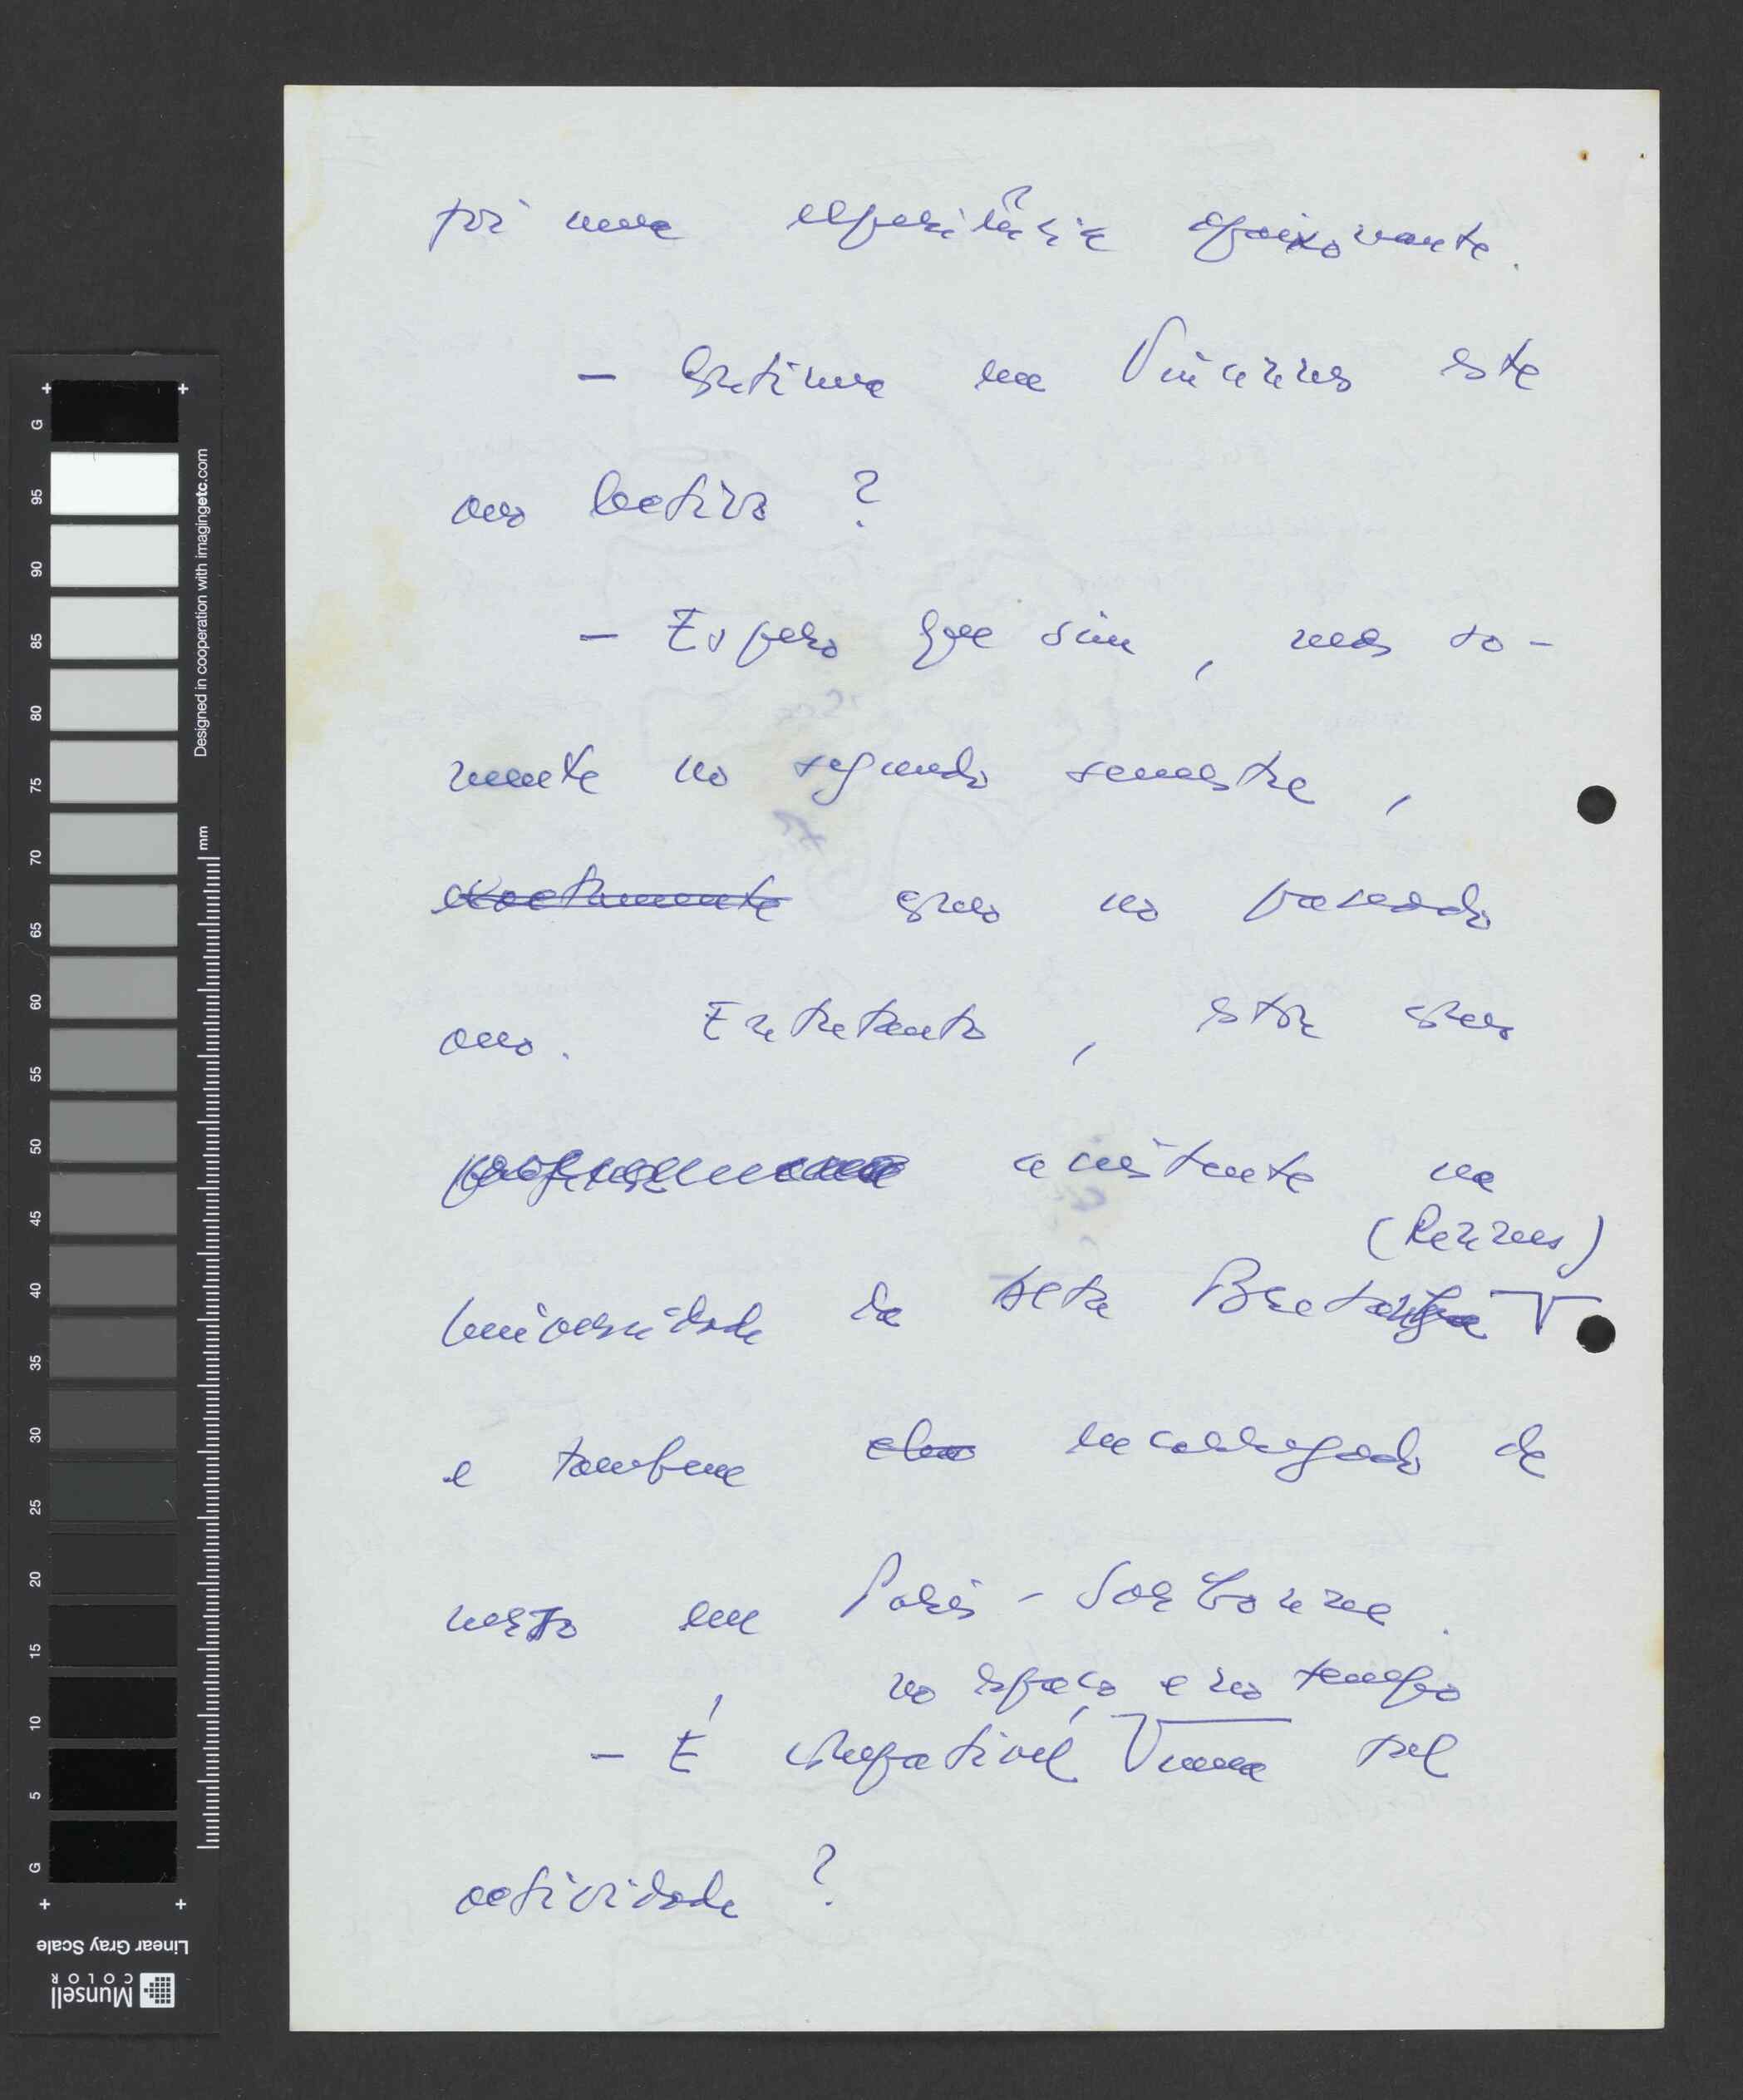 foi uma experiência apaixonante.
– Continua em Vincennes este
ano lectivo?
– Espero que sim, mas so-
mente no segundo semestre,
exactamente como no passado
ano. Entretanto, estou como
assistente na
(Rennes)
Universidade da Alta Bretanha
e também encarregado de
curso em Paris-Sorbonne.
no espaço e no tempo
– É compatível, uma tal
actividade?
G
95
90
85
80
75
70
65
60
55
50
45
40
35
30
25
20
15
10
5
G
mm
Designed in cooperation with imagingetc.com
Linear Gray Scale
Munsell
COLOR